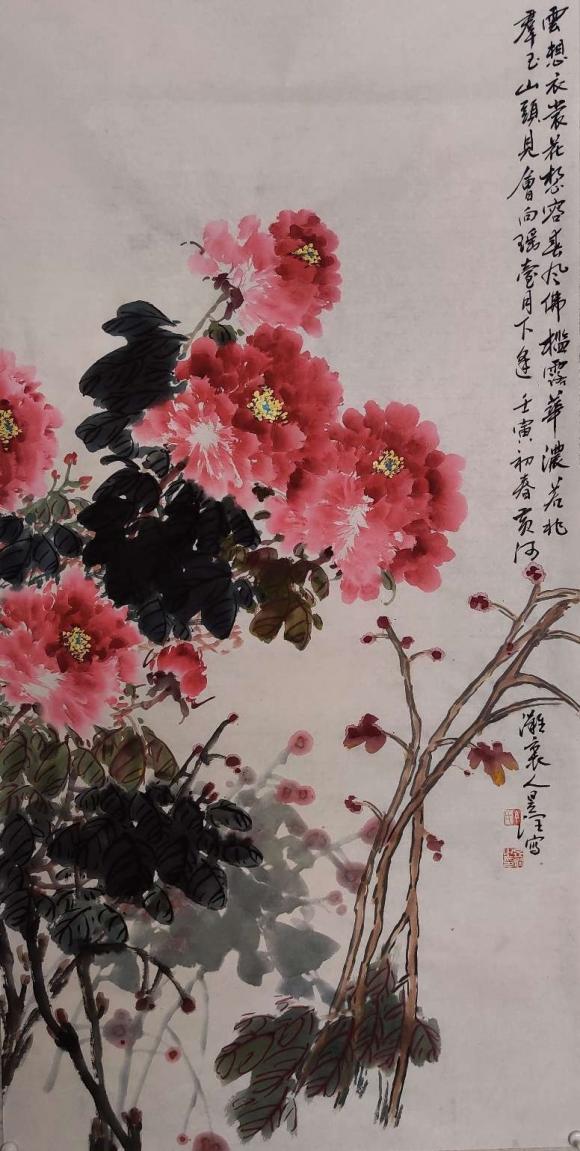 雲想衣裳花想容春风佛檻露華濃若非
羣玉山頭見會向瑶臺月下逢 壬寅初春黄河
灘裏人昱 寫